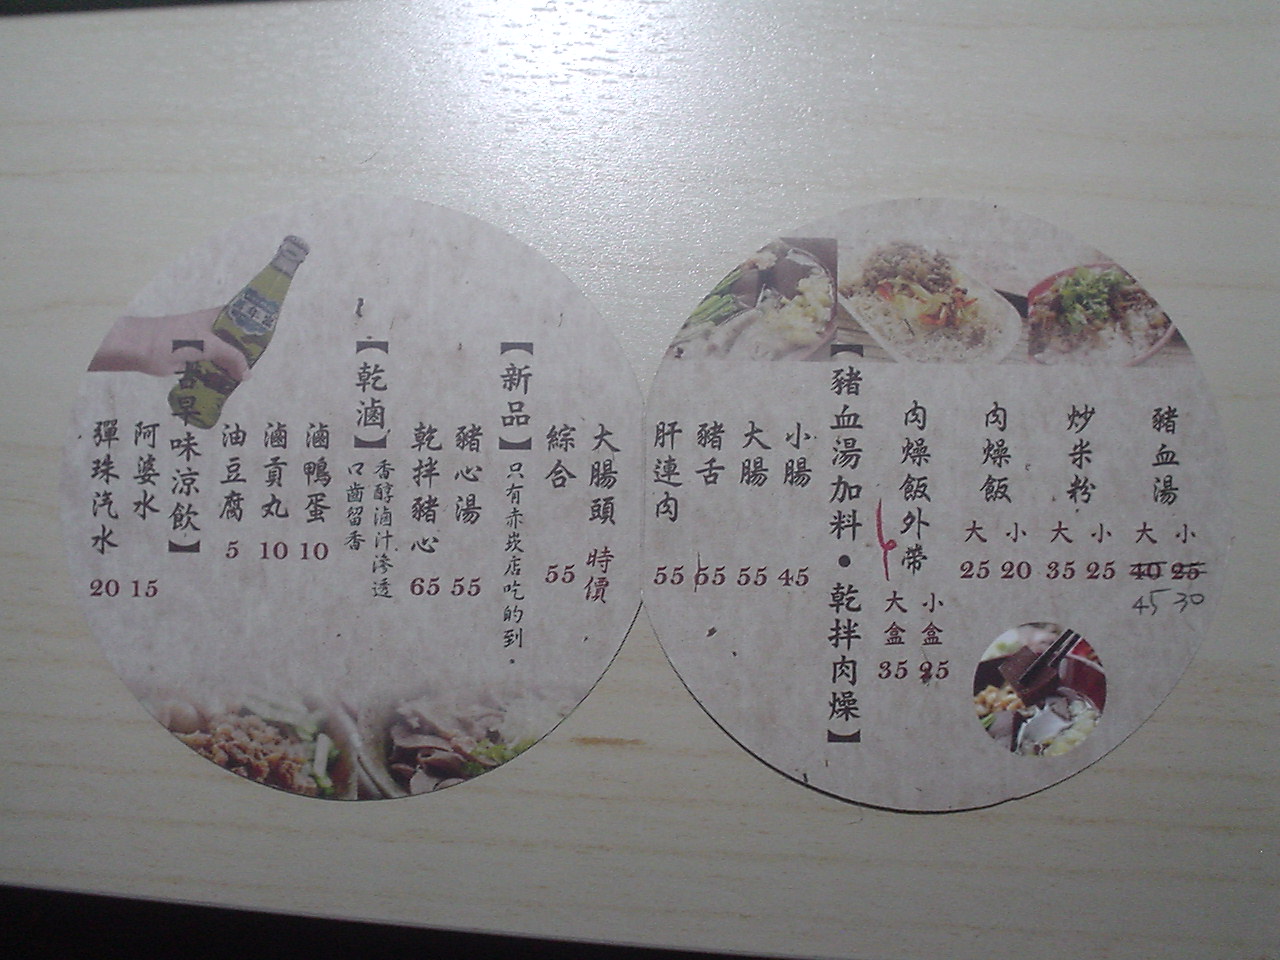 豬血湯
大 小
40 25
45 30
炒米粉
大 小
35 25
肉燥飯
大 小
25 20
肉燥飯外帶
大盒 小盒
35 25
【豬血湯加料•乾拌肉燥】
小腸 45
大腸 55
豬舌 55
肝連肉 55
大腸頭 時價
綜合 55
【新品】只有赤崁店吃的到.
豬心湯 55
乾拌豬心 65
【乾滷】
香醇滷汁滲透
口齒留香
滷鴨蛋 10
滷貢丸 10
油豆腐 5
【古早味涼飲】
阿婆水 15
彈珠汽水 20